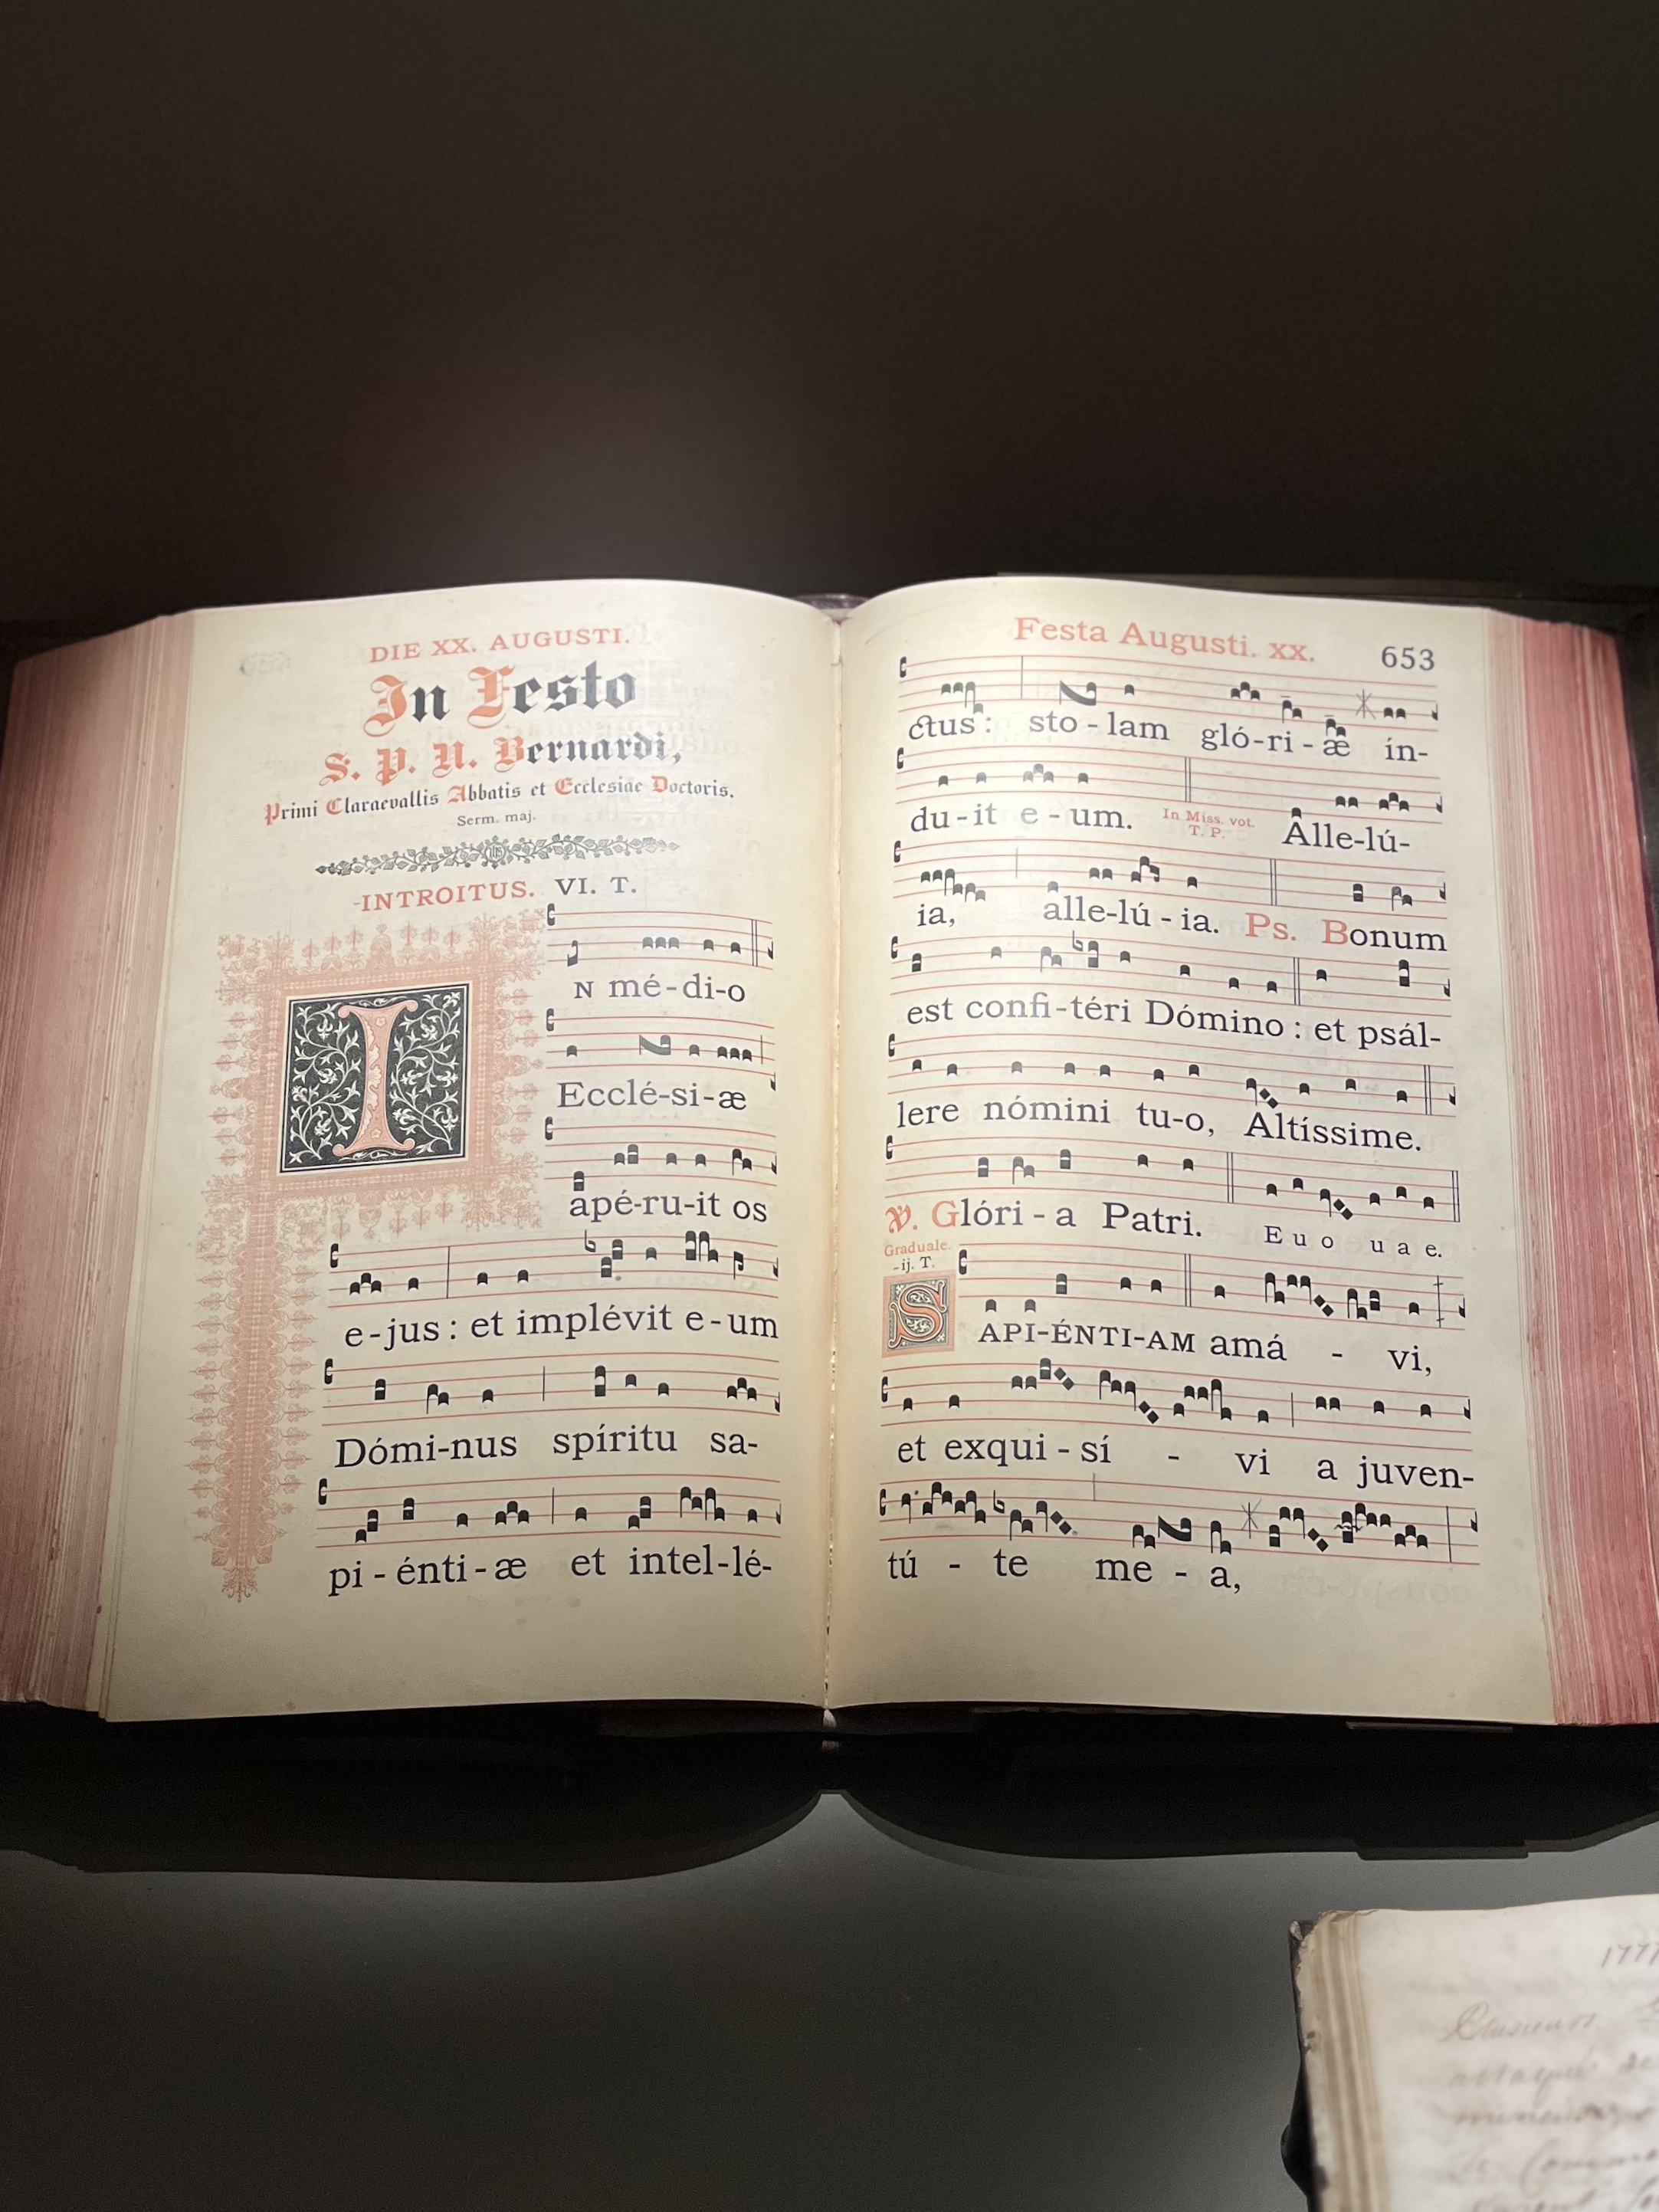 DIE XX. AUGUSTI.
In Festo
S. P. N. Bernardi,
Primi Claraevallis Abbatis et Ecclesiae Doctoris.
Serm. maj.
INTROITUS. VI. T.
IN mé-di-o
Ecclé-si-æ
apé-ru-it os
e-jus : et implévit e-um
Dómi-nus spíritu sa-
pi-énti-æ et intel-lé-
Festa Augusti. XX. 653
ctus : sto-lam gló-ri-æ ín-
du-it e-um. In Miss. vot. T. P. Alle-lú-
ia, alle-lú-ia. Ps. Bonum
est confi-téri Dómino : et psál-
lere nómini tu-o, Altíssime.
℣. Glóri-a Patri. E u o u a e.
Graduale.
-ij. T.
SAPI-ÉNTI-AM amá - vi,
et exqui-sí - vi a juven-
tú - te me - a,
1777
Plusieurs